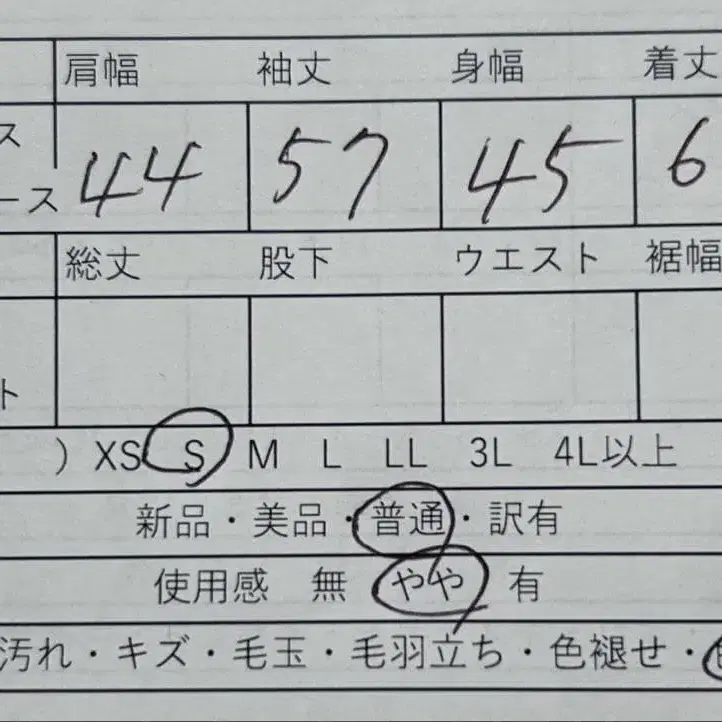 肩幅 袖丈 身幅 着丈
ス
ース 44 57 45 6
総丈 股下 ウエスト 裾幅
ト
) XS S M L LL 3L 4L以上
新品・美品・普通・訳有
使用感 無 やや 有
汚れ・キズ・毛玉・毛羽立ち・色褪せ・